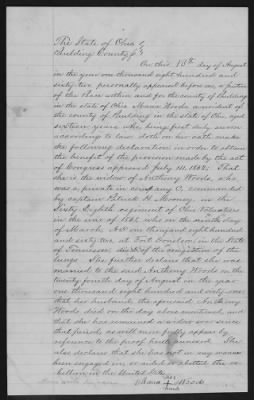 The State of Ohio }
Paulding County } SS
On this 13th day of August
in the year one thousand eight hundred and
sixty two personally appeared before me, a justice
of the Peace within and for the county of Paulding
in the state of Ohio Maria Woods a resident of
the county of Paulding in the state of Ohio, aged
sixteen years, who being first duly sworn
according to law doth on her oath make
the following declaration in order to obtain
the benefit of the provision made by the act
of Congress approved July 14, 1862. That
she is the widow of Anthony Woods, who
was a private in company C, commanded
by captain Patrick H. Mooney, in the
Sixty Eighth regiment of Ohio Volunteers
in the war of 1861 who in the month
of March, AD one thousand eight hundred
and sixty two at Fort Donelson in the State
of Tennessee died of the congestion of the
lungs. She further declares that she was
married to the said Anthony Woods on the
twenty fourth day of August in the year
one thousand eight hundred and sixty one
that her husband the aforesaid Anthony
Woods died on the day above mentioned, and
that she has remained a widow ever since
that period, as will more fully appear by
reference to the proof hereto annexed. She
also declares that she has not in any manner
been engaged in, or aided or abetted the re-
bellion in the United States.
her
Maria + Woods
mark